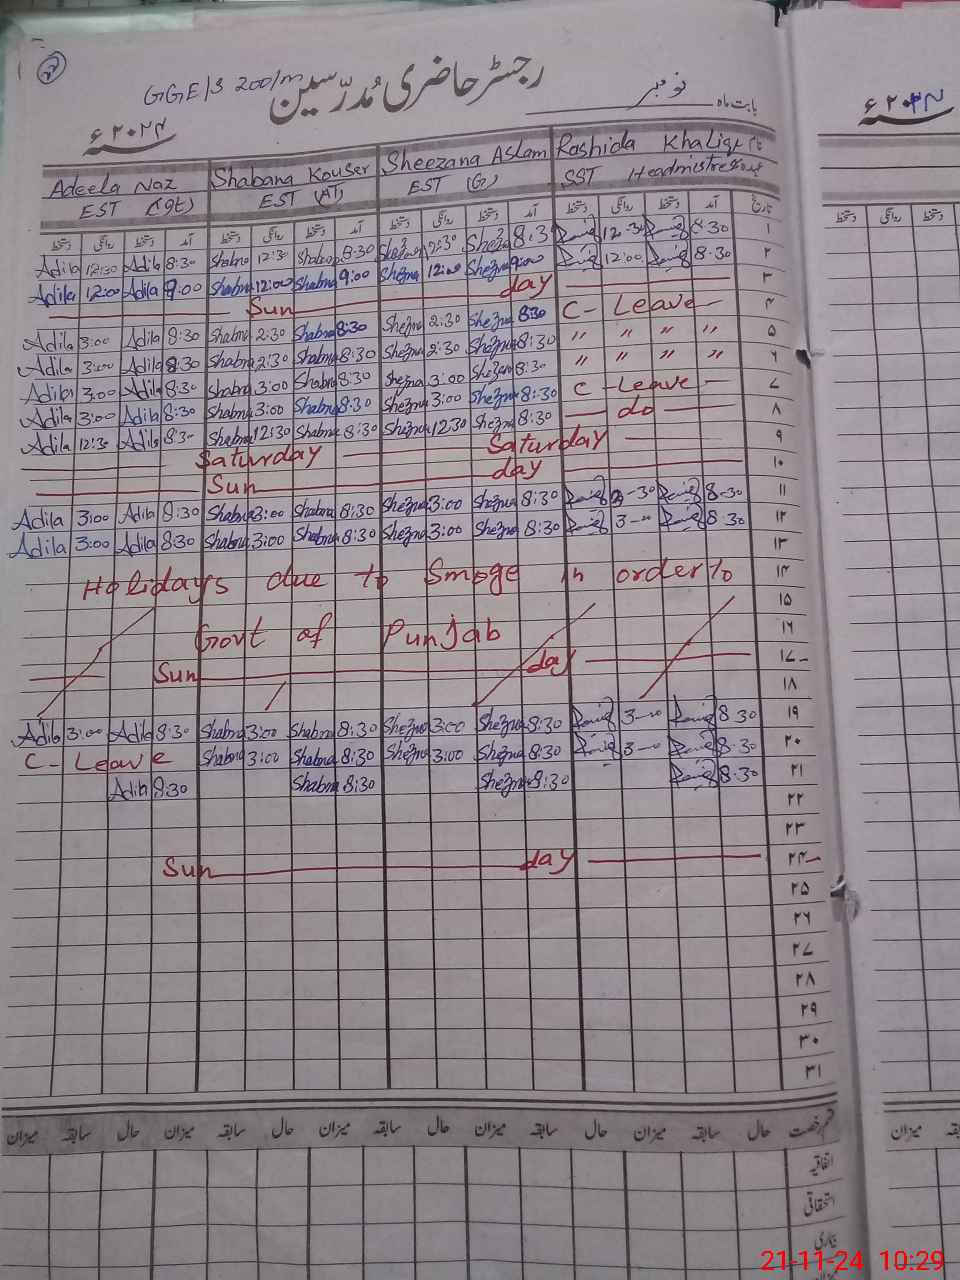 GGE/S 200/m رجسٹر حاضری مُدرّسین
بابت ماہ نومبر
۲۰۲۴ء
Adeela Naz Shabana Kouser Sheezana Aslam Rashida Khaliq نام
EST EST (AT) EST (G) SST Headmistress عہدہ
دستخط روانگی دستخط آمد دستخط روانگی دستخط آمد دستخط روانگی دستخط آمد دستخط روانگی دستخط آمد تاریخ
Adila 12:30 Adila 8:30 Shabna 12:30 Shabna 8:30 Shezna 12:30 Shezna 8:30 12:30 8:30 ۱
Adila 12:00 Adila 9:00 Shabna 12:00 Shabna 9:00 Shezna 12:00 Shezna 9:00 12:00 8:30 ۲
Sun day ۳
Adila 3:00 Adila 8:30 Shabna 2:30 Shabna 8:30 Shezna 2:30 Shezna 8:30 C- Leave ۴
Adila 3:00 Adila 8:30 Shabna 2:30 Shabna 8:30 Shezna 2:30 Shezna 8:30 " " " " ۵
Adila 3:00 Adila 8:30 Shabna 3:00 Shabna 8:30 Shezna 3:00 Shezna 8:30 " " " " ۶
Adila 3:00 Adila 8:30 Shabna 3:00 Shabna 8:30 Shezna 3:00 Shezna 8:30 C- Leave ۷
Adila 12:30 Adila 8:30 Shabna 12:30 Shabna 8:30 Shezna 12:30 Shezna 8:30 do ۸
Saturday Saturday ۹
Sun day ۱۰
Adila 3:00 Adila 8:30 Shabna 3:00 Shabna 8:30 Shezna 3:00 Shezna 8:30 8-30 ۱۱
Adila 3:00 Adila 8:30 Shabna 3:00 Shabna 8:30 Shezna 3:00 Shezna 8:30 3-00 8.30 ۱۲
۱۳
Holidays due to Smoge in order to ۱۴
۱۵
Govt of Punjab ۱۶
Sun day ۱۷
۱۸
Adila 3:00 Adila 8:30 Shabna 3:00 Shabna 8:30 Shezna 3:00 Shezna 8:30 3-00 8.30 ۱۹
C- Leave Shabna 3:00 Shabna 8:30 Shezna 3:00 Shezna 8:30 3-00 8.30 ۲۰
Adila 8:30 Shabna 8:30 Shezna 8:30 8.30 ۲۱
۲۲
۲۳
Sun day ۲۴
۲۵
۲۶
۲۷
۲۸
۲۹
۳۰
۳۱
میزان سابقہ حال میزان سابقہ حال میزان سابقہ حال میزان سابقہ حال میزان سابقہ حال قسم رخصت
اتفاقیہ
استحقاقی
بیماری
میزان
۲۰۲۴ء
دستخط روانگی دستخط
میزان
21-11-24 10:29